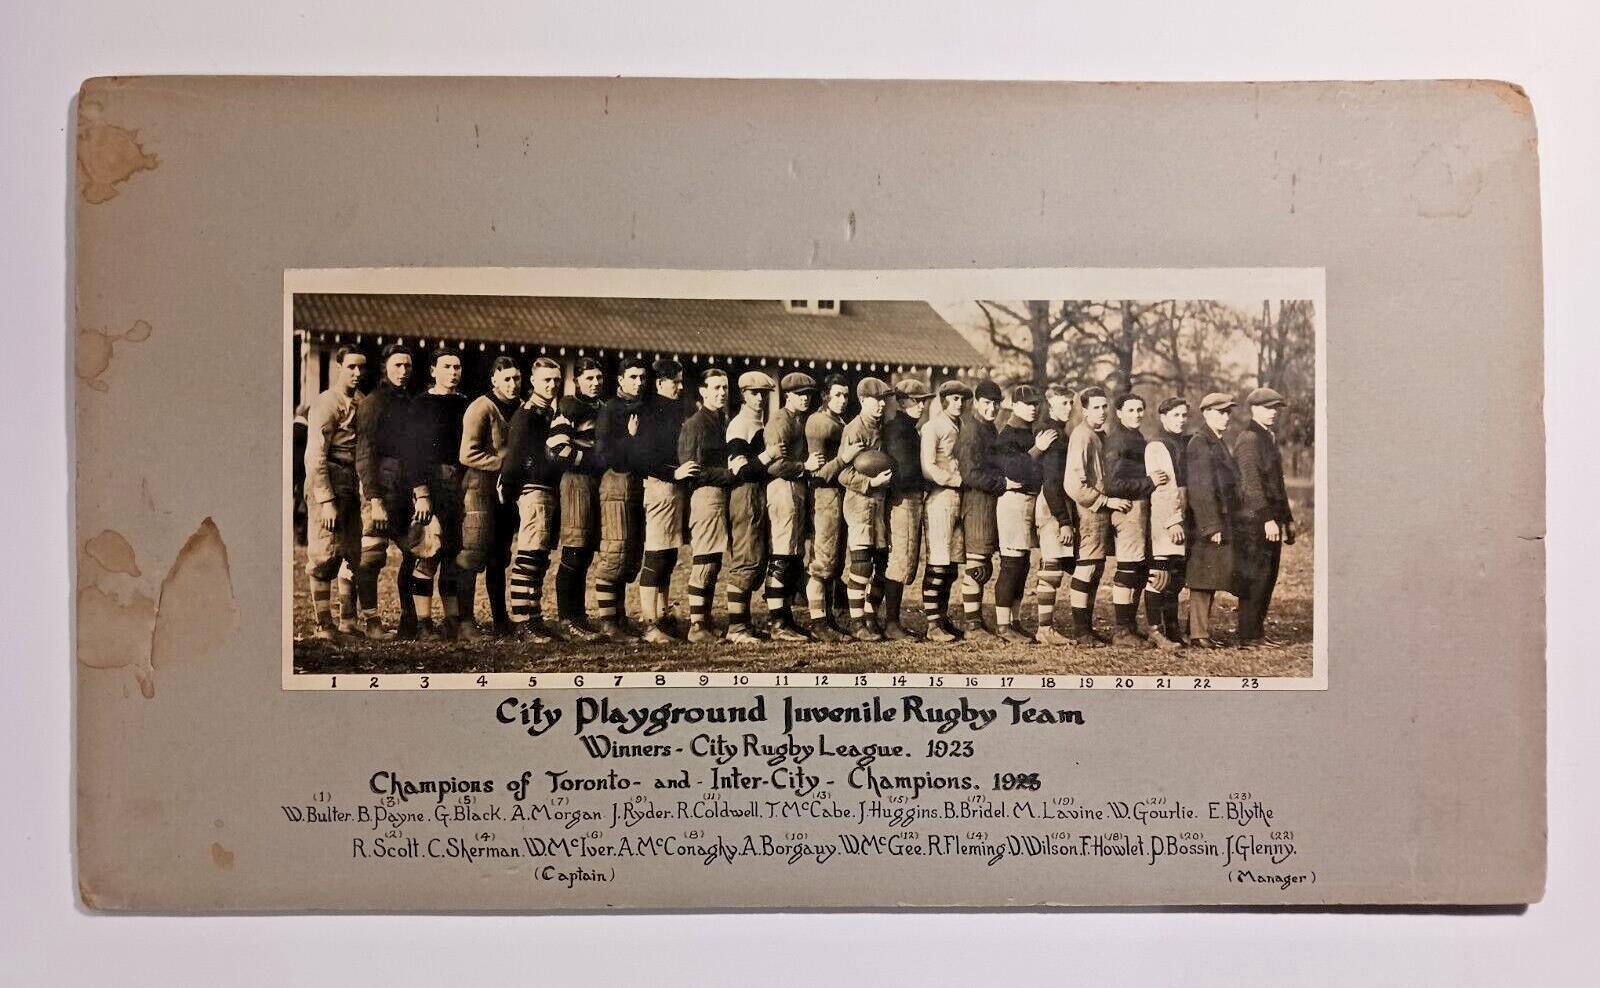 1 2 3 4 5 6 7 8 9 10 11 12 13 14 15 16 17 18 19 20 21 22 23
City Playground Juvenile Rugby Team
Winners - City Rugby League. 1923
Champions of Toronto - and - Inter-City - Champions. 1923
(1) (3) (5) (7) (9) (11) (13) (15) (17) (19) (21) (23)
W. Bulter. B. Payne. G. Black. A. Morgan J. Ryder. R. Coldwell. T. McCabe. J. Huggins. B. Bridel. M. Lavine. W. Gourlie. E. Blythe
(2) (4) (6) (8) (10) (12) (14) (16) (18) (20) (22)
R. Scott. C. Sherman. W. McIver. A. McConaghy. A. Borgauy. W. McGee. R. Fleming D. Wilson. F. Howlet. P. Bossin. J. Glenny.
(Captain) (Manager)